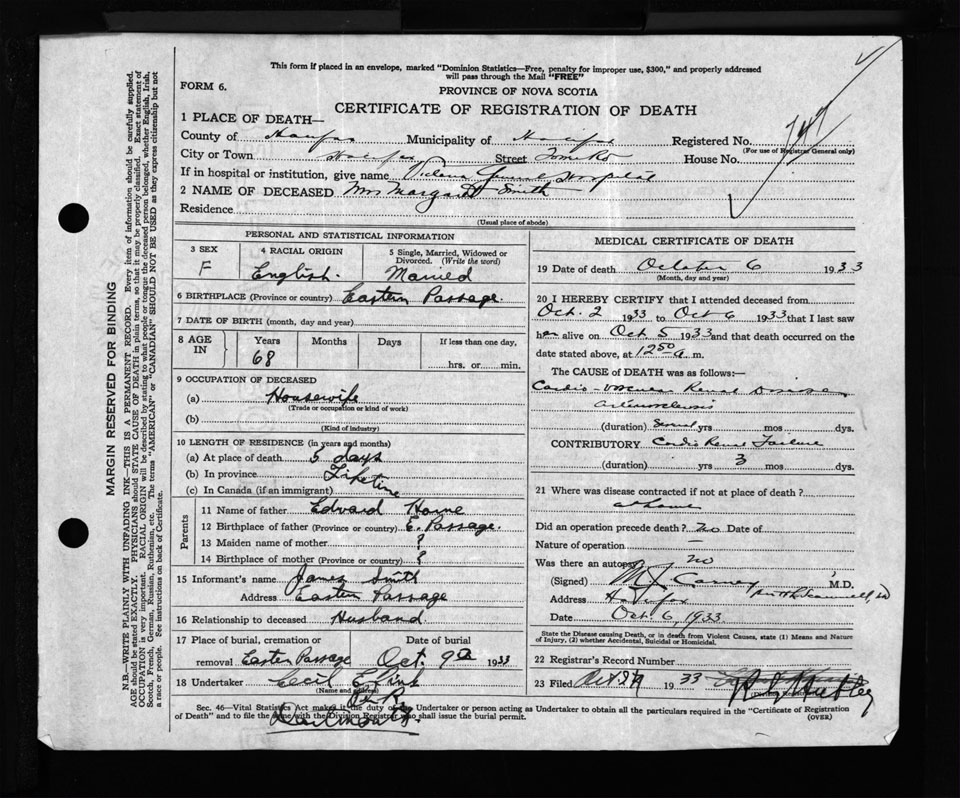 This form if placed in an envelope, marked "Dominion Statistics—Free, penalty for improper use, $300," and properly addressed
will pass through the Mail "FREE"
FORM 6.
PROVINCE OF NOVA SCOTIA
CERTIFICATE OF REGISTRATION OF DEATH
1 PLACE OF DEATH—
County of Halifax Municipality of Halifax Registered No.
(For use of Registrar General only)
City or Town Halifax Street House No.
If in hospital or institution, give name Victoria General Hospital
2 NAME OF DECEASED Mrs Margaret Smith
Residence
(Usual place of abode)
PERSONAL AND STATISTICAL INFORMATION
3 SEX F
4 RACIAL ORIGIN English.
5 Single, Married, Widowed or Divorced. (Write the word) Married
6 BIRTHPLACE (Province or country) Eastern Passage.
7 DATE OF BIRTH (month, day and year)
8 AGE IN Years Months Days If less than one day,
68 hrs. or min.
9 OCCUPATION OF DECEASED
(a) Housewife
(Trade or occupation or kind of work)
(b)
(Kind of industry)
10 LENGTH OF RESIDENCE (in years and months)
(a) At place of death 5 days
(b) In province Lifetime
(c) In Canada (if an immigrant)
Parents
11 Name of father Edward Horne
12 Birthplace of father (Province or country) E. Passage.
13 Maiden name of mother ?
14 Birthplace of mother (Province or country) ?
15 Informant's name James Smith
Address Eastern Passage
16 Relationship to deceased Husband
17 Place of burial, cremation or Date of burial
removal Easter Passage Oct. 9th 1933
18 Undertaker Cecil E. Zink
(Name and address)
Dartmouth
MEDICAL CERTIFICATE OF DEATH
19 Date of death October 6 1933
(Month, day and year)
20 I HEREBY CERTIFY that I attended deceased from
Oct. 2 1933 to Oct 6 1933 that I last saw
her alive on Oct. 5 1933 and that death occurred on the
date stated above, at 12 50 a. m.
The CAUSE OF DEATH was as follows:—
Cardio-vascular Renal Disease
arteriosclerosis
(duration) Several yrs mos dys.
CONTRIBUTORY Cardio Renal Failure
(duration) yrs 3 mos. dys.
21 Where was disease contracted if not at place of death?
at home
Did an operation precede death? no Date of
Nature of operation —
Was there an autopsy no
(Signed) M.D.
Address Halifax
Date Oct 6, 1933
State the Disease causing Death, or in death from Violent Causes, state (1) Means and Nature
of Injury, (2) whether Accidental, Suicidal or Homicidal.
22 Registrar's Record Number
23 Filed Oct 1933
Sec. 46—Vital Statistics Act makes it the duty of the Undertaker or person acting as Undertaker to obtain all the particulars required in the "Certificate of Registration
of Death" and to file the same with the Division Registrar who shall issue the burial permit. (OVER)
MARGIN RESERVED FOR BINDING
N.B.—WRITE PLAINLY WITH UNFADING INK—THIS IS A PERMANENT RECORD. Every item of information should be carefully supplied.
AGE should be stated EXACTLY. PHYSICIANS should STATE CAUSE OF DEATH in plain terms, so that it may be properly classified. Exact statement of
OCCUPATION is very important. RACIAL ORIGIN will be described by stating to what people or tongue the deceased person belonged, whether English, Irish,
Scotch, French, German, Russian, Ruthenian, etc. The terms "AMERICAN" or "CANADIAN" SHOULD NOT BE USED as they express citizenship but not
a race or people. See instructions on back of Certificate.